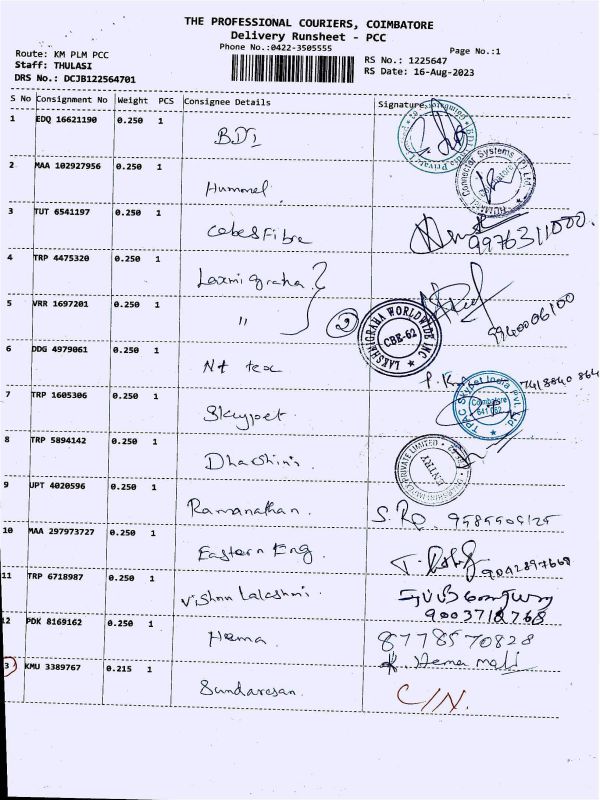 THE PROFESSIONAL COURIERS, COIMBATORE
Delivery Runsheet - PCC
Phone No.:0422-3505555
Page No.:1
Route: KM PLM PCC
Staff: THULASI
DRS No.: DCJB122564701
RS No.: 1225647
RS Date: 16-Aug-2023
S No Consignment No Weight PCS Consignee Details Signature
1 EDQ 16621190 0.250 1
BDI
2 MAA 102927956 0.250 1
Hummel
3 TUT 6541197 0.250 1
Cabes Fibre 9976311000.
4 TRP 4475320 0.250 1
Laxmi graha
5 VRR 1697201 0.250 1
" 2 LAKSHMIGRAHA WORLDWIDE INC CBE-62 9940006100
6 DDG 4979061 0.250 1
N+ tex
7 TRP 1605306 0.250 1
Skypet Coimbatore 641 062
8 TRP 5894142 0.250 1
Dharshini. ENTRY
9 UPT 4020596 0.250 1
Ramanathan.
10 MAA 297973727 0.250 1
Eastern Eng. 9042897668
11 TRP 6718987 0.250 1
Vishnu Lakshmi.
12 PDK 8169162 0.250 1
Hema 8778570828
13 KMU 3389767 0.215 1
Hema mali
Sundaresan. C/N.